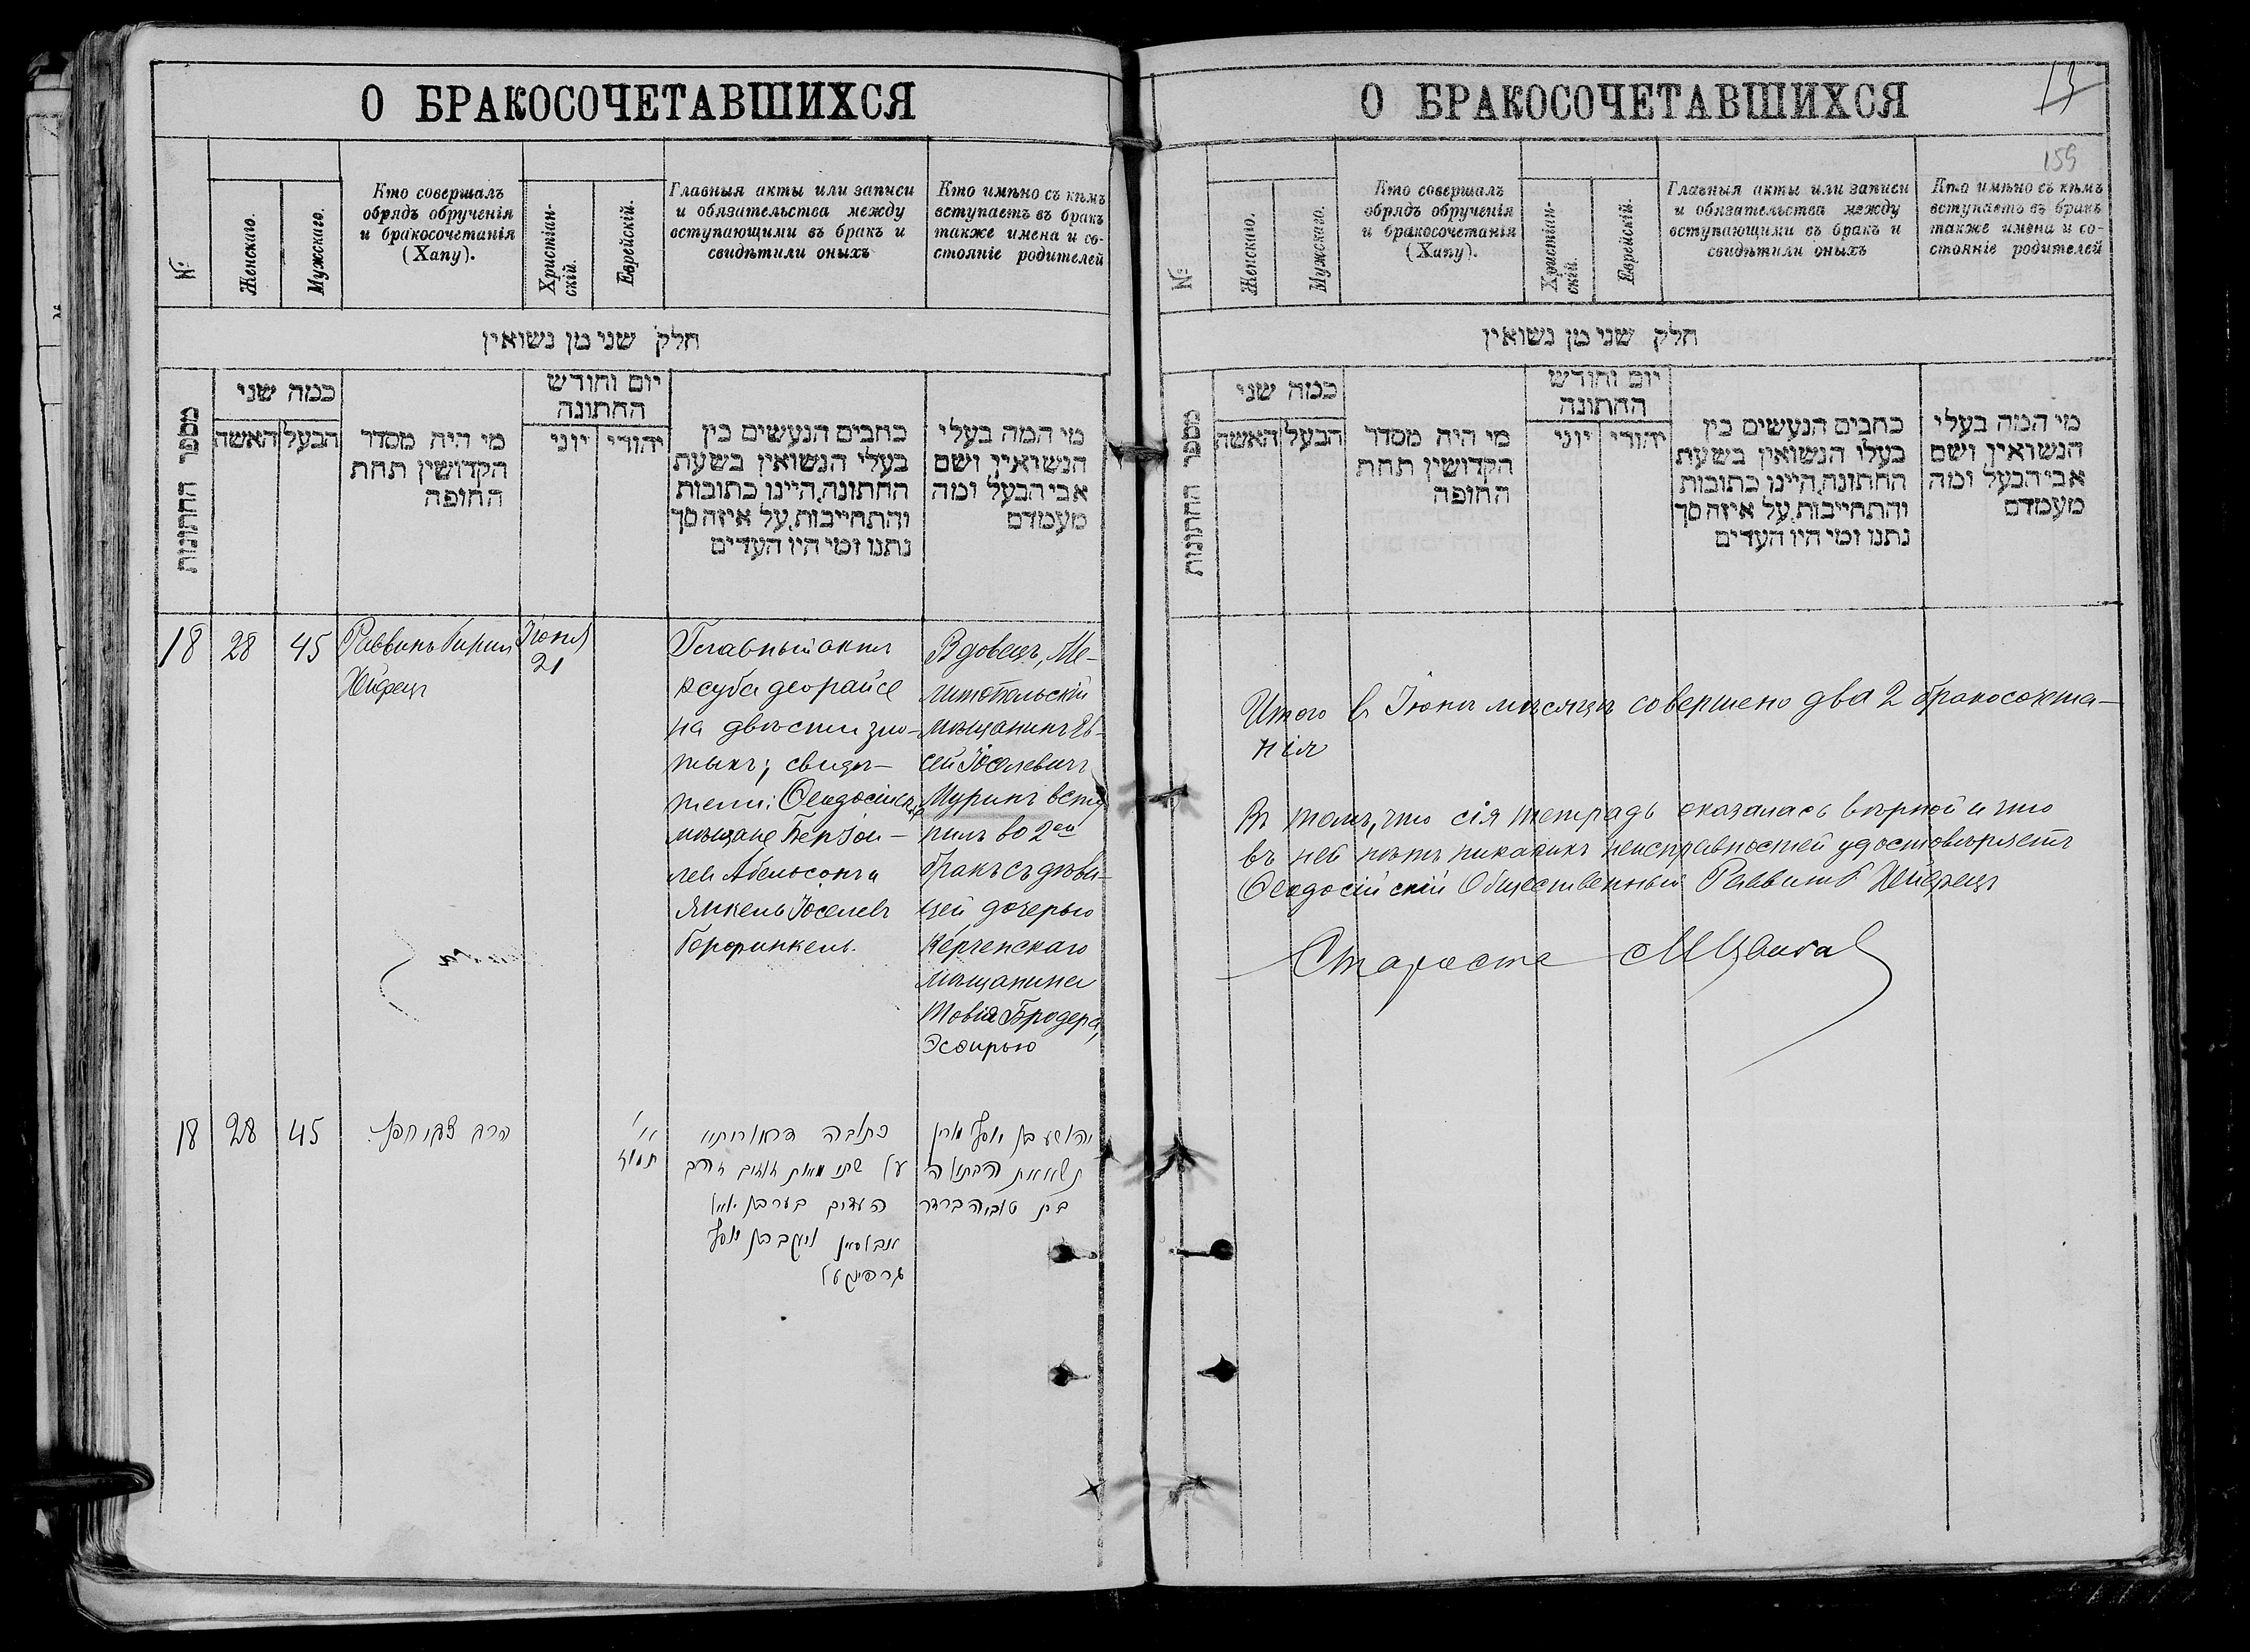 О БРАКОСОЧЕТАВШИХСЯ
№
Женскаго.
Мужскаго.
Кто совершалъ
обрядъ обрученія
и бракосочетанія
(Хапу).
Христіан-
скій.
Еврейскій.
Главныя акты или записи
и обязательства между
вступающими въ бракъ и
свидѣтили оныхъ
Кто имѣно съ кѣмъ
вступаетъ въ бракъ
также имена и со-
стояніе родителей
חלק שני מן נשואין
מספר החתונות
כמה שני
האשה
הבעל
מי היה מסדר
הקדושין תחת
החופה
יום וחודש
החתונה
יוני
יהודי
כתבים הנעשים בין
בעלי הנשואין בשעת
החתונה, היינו כתובות
והתחייבות, על איזה סך
נתנו ומי היו העדים
מי המה בעלי
הנשואין ושם
אבי הבעל ומה
מעמדם
18
28
45
Раввинъ
Хейфецъ
Іюня
21
Главный актъ
Ксуба деорайсе
на двѣсти зло-
тыхъ; свидѣ-
тели: Ѳеодосійскіе
мѣщане Беръ Іои-
лев Абельсонъ и
Янкель Іоселевъ
Горфинкель.
Вдовецъ, Ме-
литопольскій
мѣщанинъ Ев-
сей Іоселевичъ
Муринъ всту
пилъ во 2ой
бракъ съ дѣви-
цей дочерью
Керченскаго
мѣщанина
Товія Бродера,
Эсѳирью
18
28
45
הרב צבי חפץ
תמוז
כתובה דאורייתא
על שתי מאות זוזים זהב
העדים בער בן יואל
אבלסאן ויעקב בן יוסף
גרפינקעל
יהושע בן יוסף מורין
בת טוביה ברדר
О БРАКОСОЧЕТАВШИХСЯ
13
159
№
Женскаго.
Мужскаго.
Кто совершалъ
обрядъ обрученія
и бракосочетанія
(Хапу).
Христіан-
скій.
Еврейскій.
Главныя акты или записи
и обязательства между
вступающими въ бракъ и
свидѣтили оныхъ
Кто имѣно съ кѣмъ
вступаетъ въ бракъ
также имена и со-
стояніе родителей
חלק שני מן נשואין
מספר החתונות
כמה שני
האשה
הבעל
מי היה מסדר
הקדושין תחת
החופה
יום וחודש
החתונה
יוני
יהודי
כתבים הנעשים בין
בעלי הנשואין בשעת
החתונה, היינו כתובות
והתחייבות, על איזה סך
נתנו ומי היו העדים
מי המה בעלי
הנשואין ושם
אבי הבעל ומה
מעמדם
Итого въ Іюнѣ мѣсяцѣ совершено два 2 бракосочета-
нія
Въ томъ, что сія тетрадь оказалась вѣрной и что
въ ней нѣтъ никакихъ неисправностей удостовѣряетъ
Ѳеодосійскій Общественный Раввинъ Хейфецъ
Староста